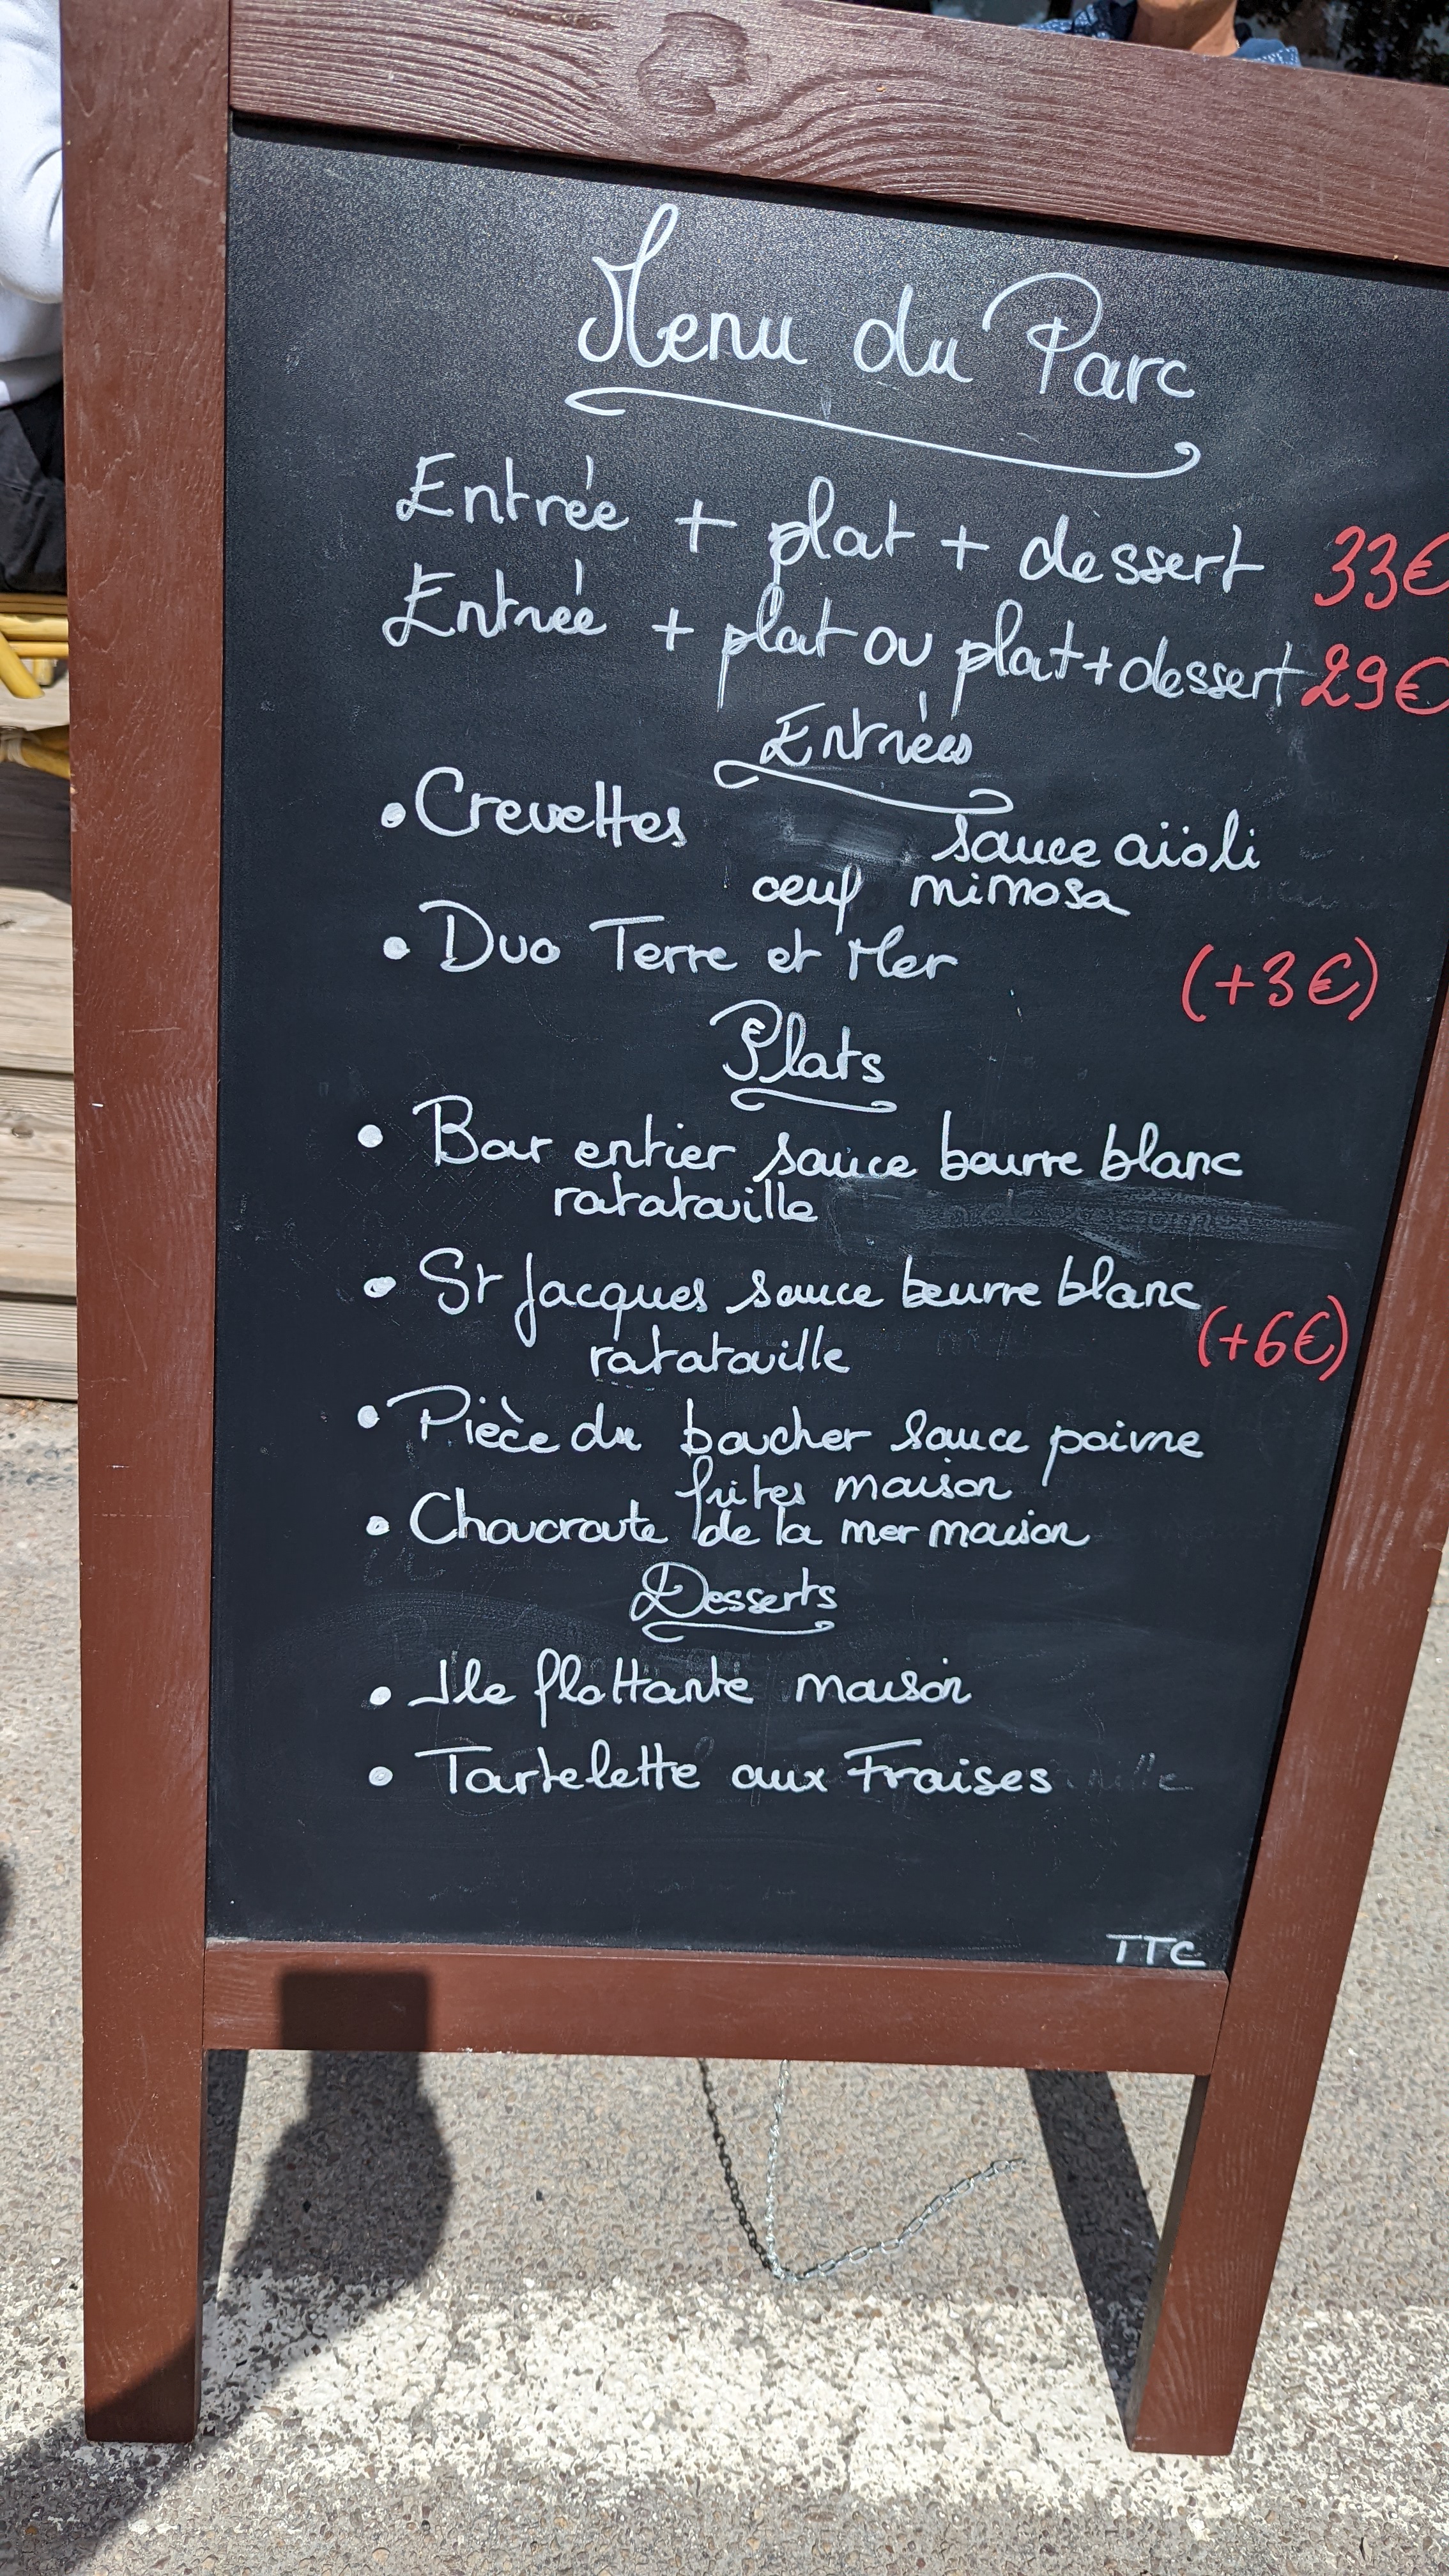 Menu du Parc
Entrée + plat + dessert 33€
Entrée + plat ou plat + dessert 29€
Entrées
• Crevettes sauce aïoli
œuf mimosa
• Duo Terre et Mer (+3€)
Plats
• Bar entier sauce beurre blanc
ratatouille
• St Jacques sauce beurre blanc (+6€)
ratatouille
• Pièce du boucher sauce poivre
frites maison
• Choucroute de la mer maison
Desserts
• Ile flottante maison
• Tartelette aux Fraises
TTC